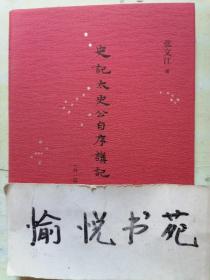 张文江 著
史記太史公自序講記
愉悦书苑